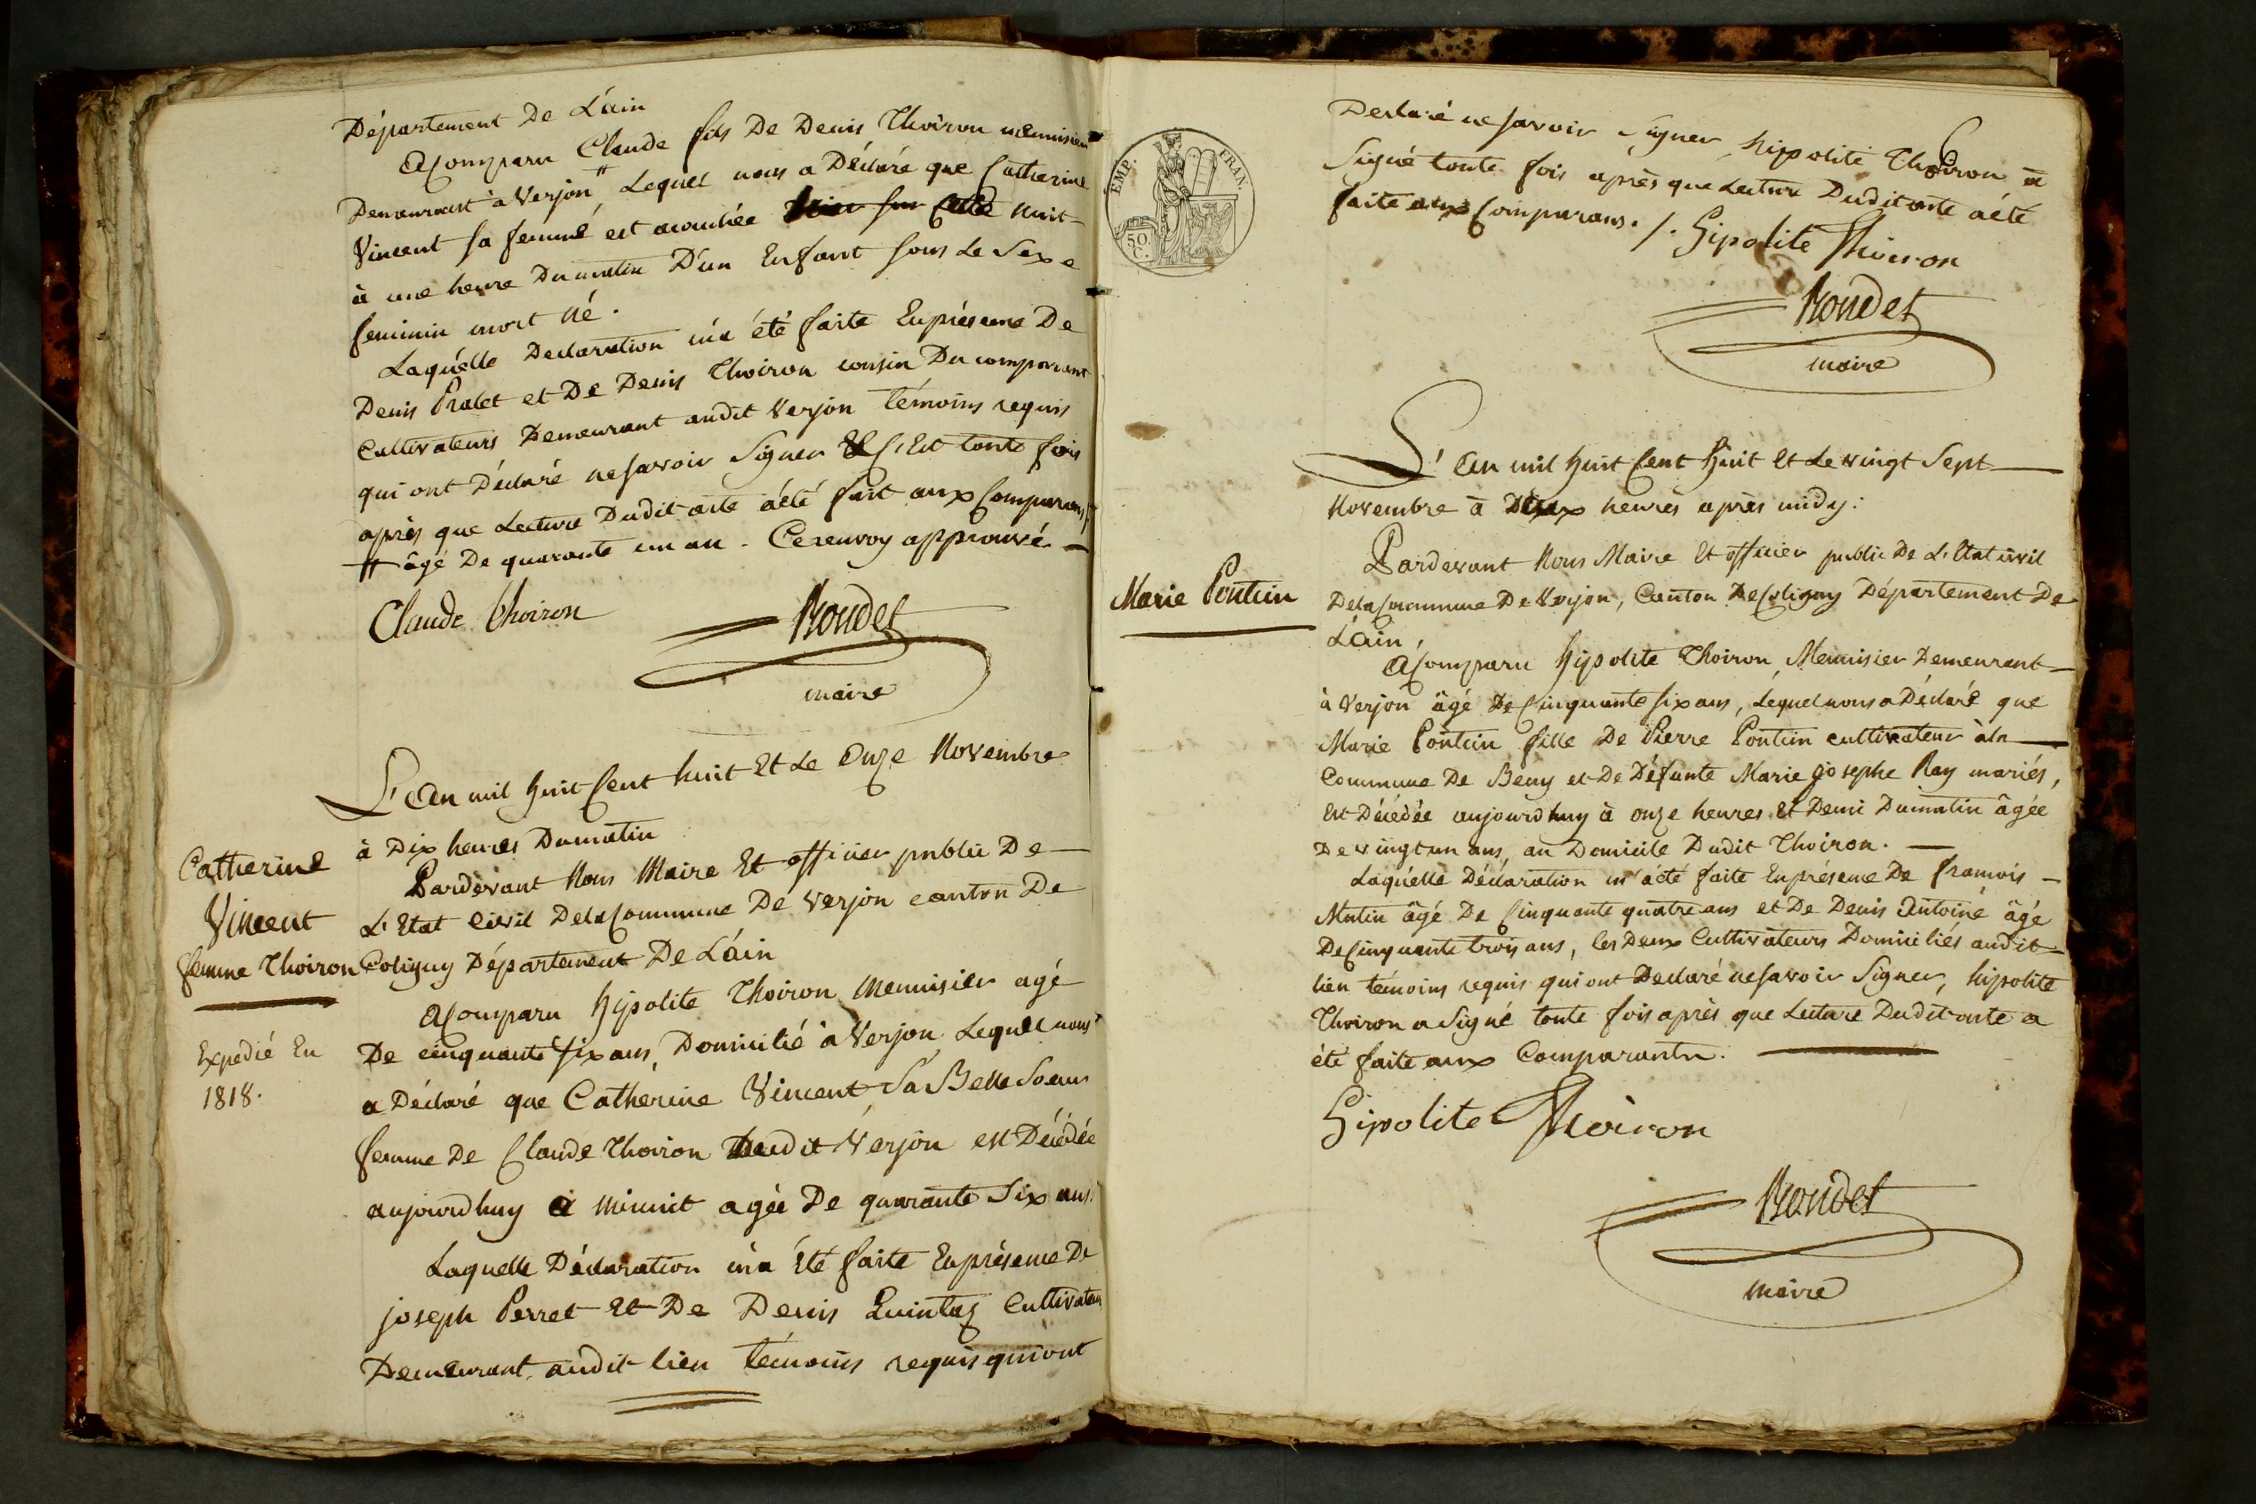 Département De L'ain
A Comparu Claude fils De Denis Thoiron menuisier
Demeurant à Verjon # Lequel nous a Déclaré que Catherine
Vincent sa femme est acouchée cette nuit
à une heure Du matin D'un Enfant sous Le Sexe
feminin mort né.
Laquélle Declaration m'a été faite En présence De
Denis Pralet et De Denis Thoiron cousin Du comparant
Cultivateurs Demeurant audit Verjon témoins requis
qui ont Déclaré ne savoir Signer Et C'Est toute fois
après que Lecture Dudit acte a été fait aux Comparans
# âgé De quarante un an. Ce renvoy approuvé
Claude thoiron
Rondet
maire
L'An mil huit Cent huit Et Le Onze Novembre
à Dix heures Du matin
Catherine
Vincent
femme Thoiron
Expedié En
1818.
Pardevant Nous Maire Et officier public De
L'Etat Civil De la Commune De Verjon canton De
Coligny Département De L'ain
A Comparu hypolite Thoiron Menuisier agé
De cinquante six ans, Domicilié à Verjon, Lequel nous
a Déclaré que Catherine Vincent Sa Belle Soeur
femme De Claude Thoiron Dudit Verjon est Décédée
aujourdhuy à minuit agée De quarante Six ans.
Laquelle Déclaration m'a Eté faite En présence De
joseph Perret Et De Denis Quintaz Cultivateurs
Demeurant audit lieu témoins requis qui ont
EMP. FRAN.
50.
C.
Declaré ne savoir Signer hippolite Thoiron a
Signé toute fois après que Lecture Dudit acte a été
faite aux Comparans. /. Hipolite Thoiron
Rondet
maire
L'An mil huit Cent huit Et Le vingt Sept
Novembre à Deux heures après midy:
Marie Pontun
Pardevant Nous Maire Et officier public De L'Etat civil
De la Commune De Verjon, Canton De Coligny Département De
L'Ain,
A Comparu hypolite Thoiron, Menuisier Demeurant
à Verjon âgé De Cinquante six ans, Lequel nous a Déclaré que
Marie Pontun fille De Pierre Pontun cultivateur à la
Commune De Beny et De Défunte Marie josephe Ray mariés,
Est Décédée aujourdhuy à onze heures et Demi Du matin âgée
De vingt un ans, au Domicile Dudit Thoiron.
Laquélle Déclaration m'a été faite En présence De francois
Mutin âgé De Cinquante quatre ans et De Denis Antoine âgé
De Cinquante trois ans, les Deux Cultivateurs Domiciliés audit
lieu témoins requis qui ont Declaré ne savoir Signer, hipolite
Thoiron a Signé toute fois après que Lecture Dudit acte a
été faite aux Comparants.
Hipolite Thoiron
Rondet
maire